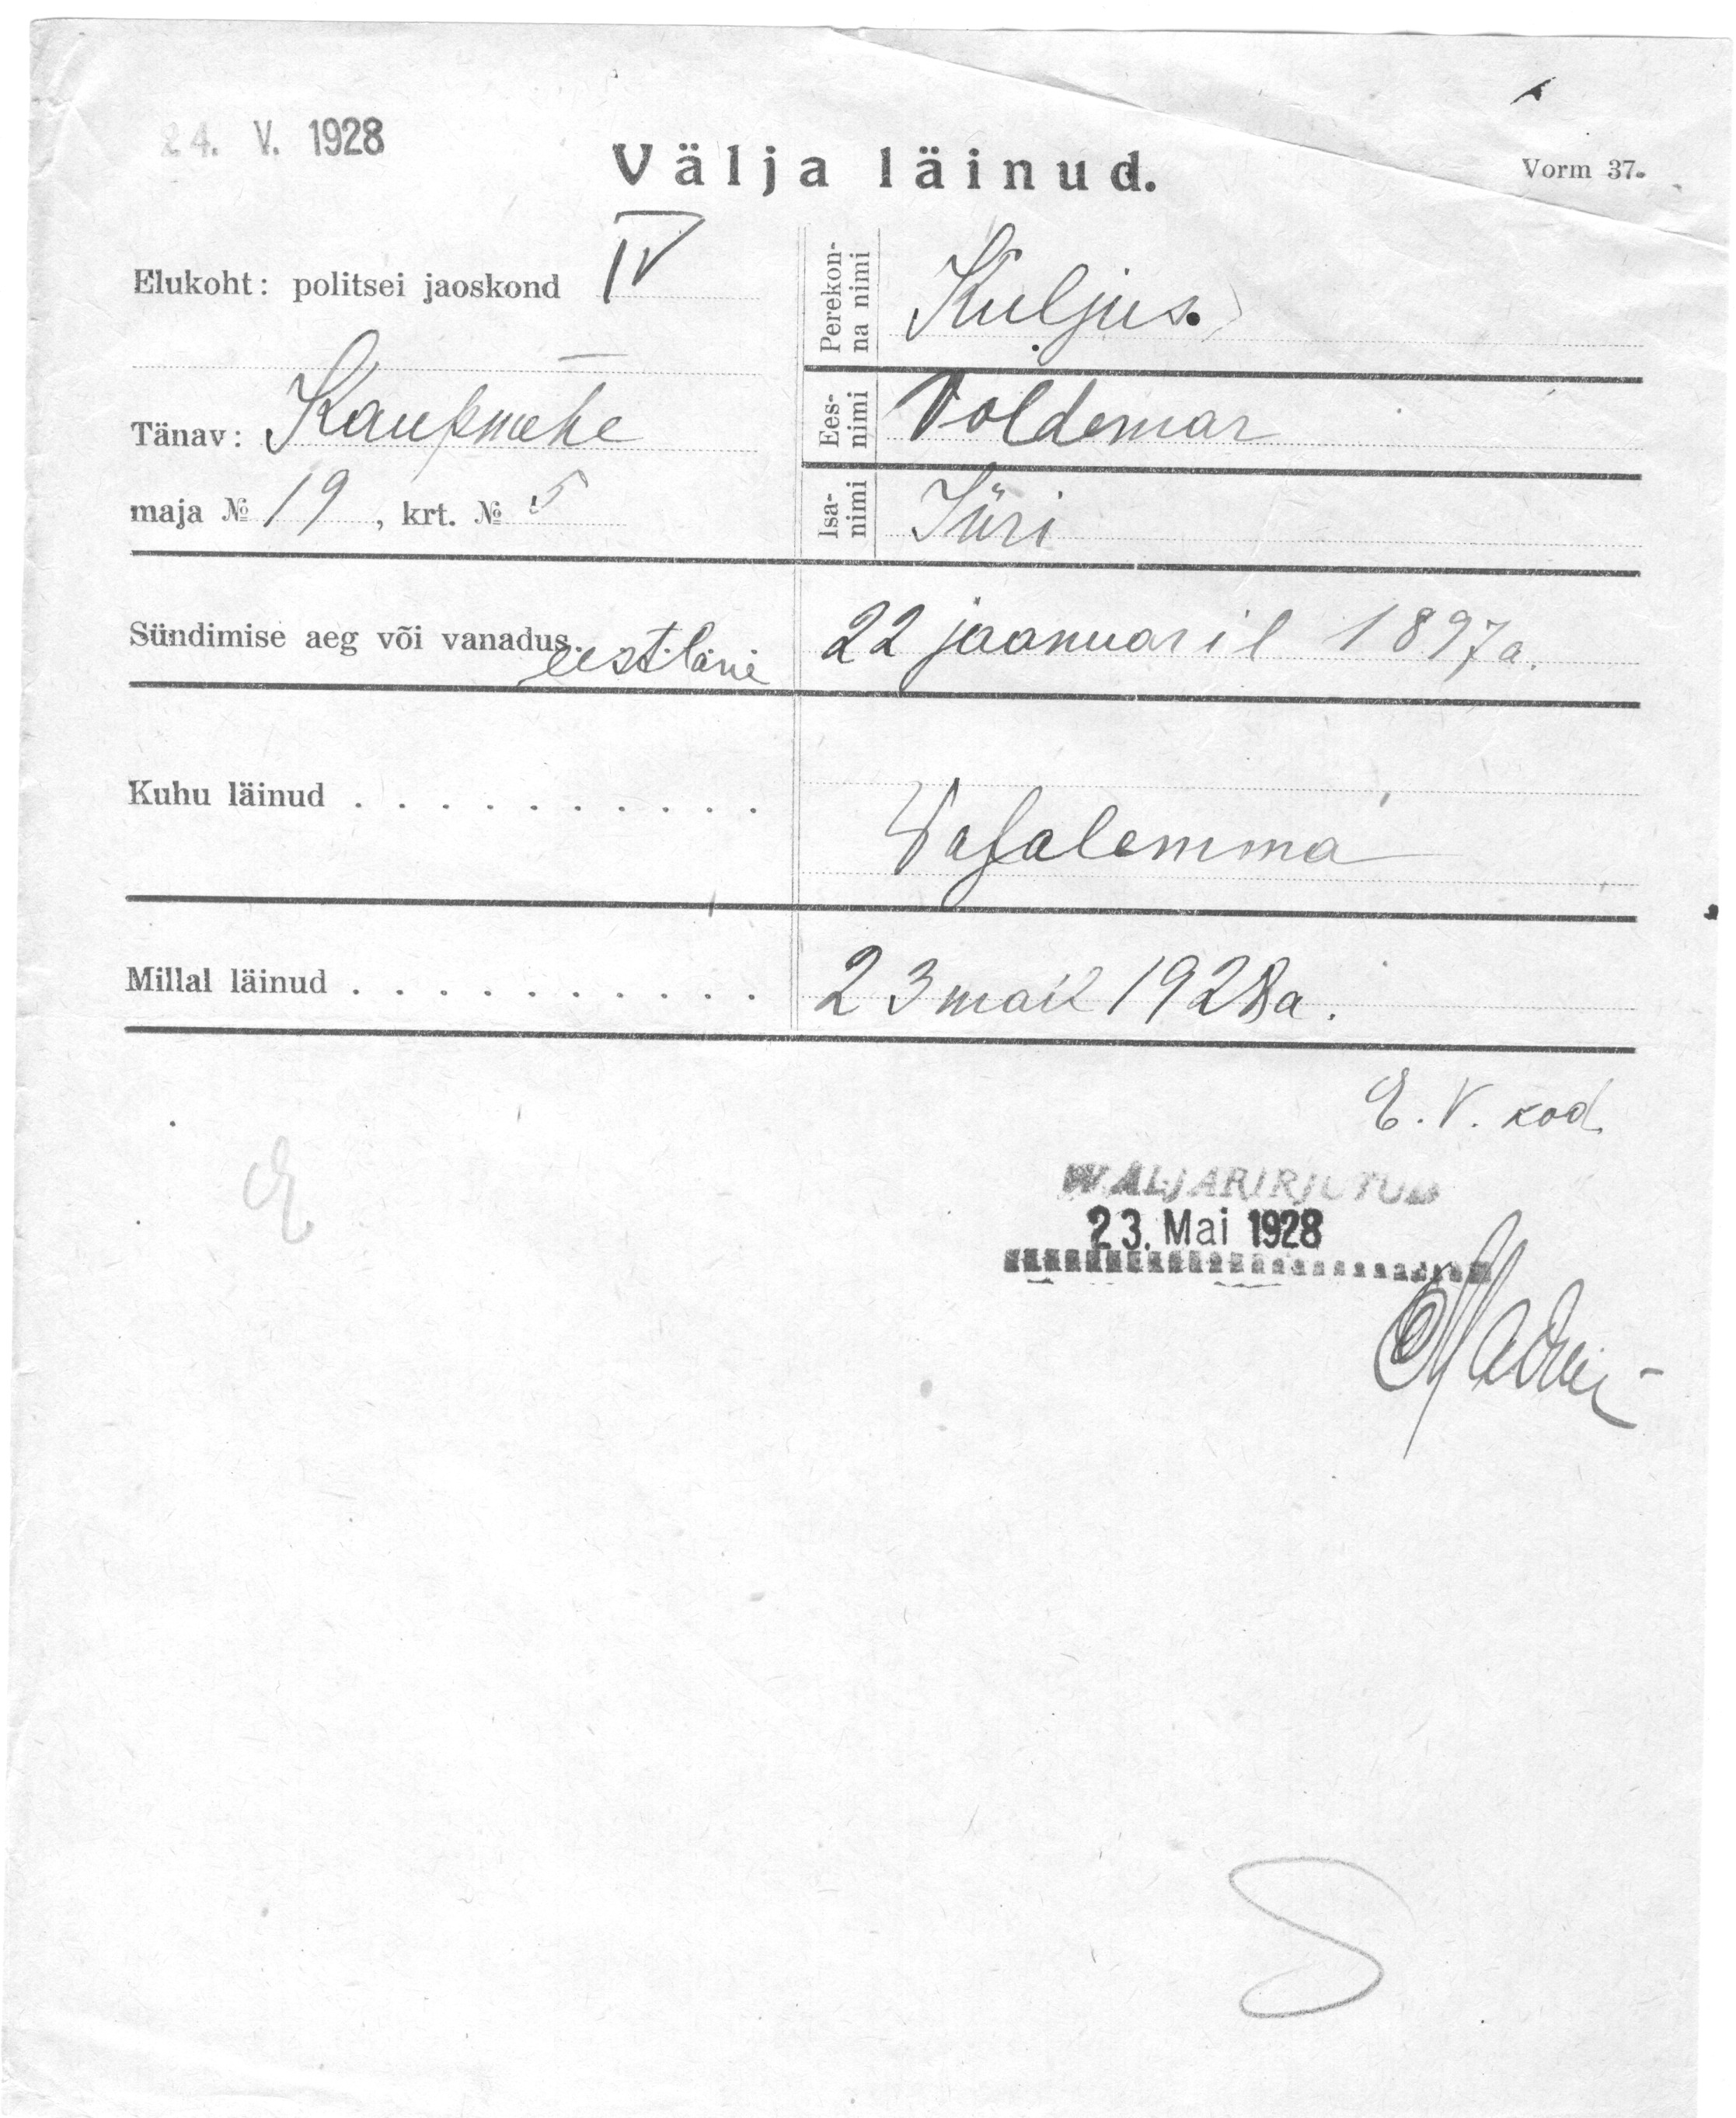 24. V. 1928
Välja läinud.
Vorm 37.
Elukoht: politsei jaoskond IV
Tänav: Kaupmehe
maja № 19, krt. № 5
Perekon-
na nimi
Kuljus.
Ees-
nimi
Voldemar
Isa-
nimi
Jüri
Sündimise aeg või vanadus.
eestlane
22 jaanuaril 1897a.
Kuhu läinud . . . . . . . . . . .
Wasalemma
Millal läinud . . . . . . . . . . .
23 mail 1928a.
E. V. kod.
23. Mai 1928